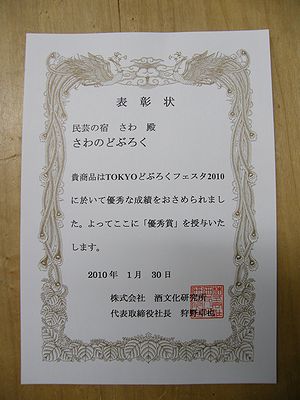 表彰状
民芸の宿　さわ　殿
さわのどぶろく
貴商品はTOKYOどぶろくフェスタ2010
に於いて優秀な成績をおさめられまし
た。よってここに「優秀賞」を授与いた
します。
2010年　1月　30日
株式会社　酒文化研究所
代表取締役社長　狩野卓也